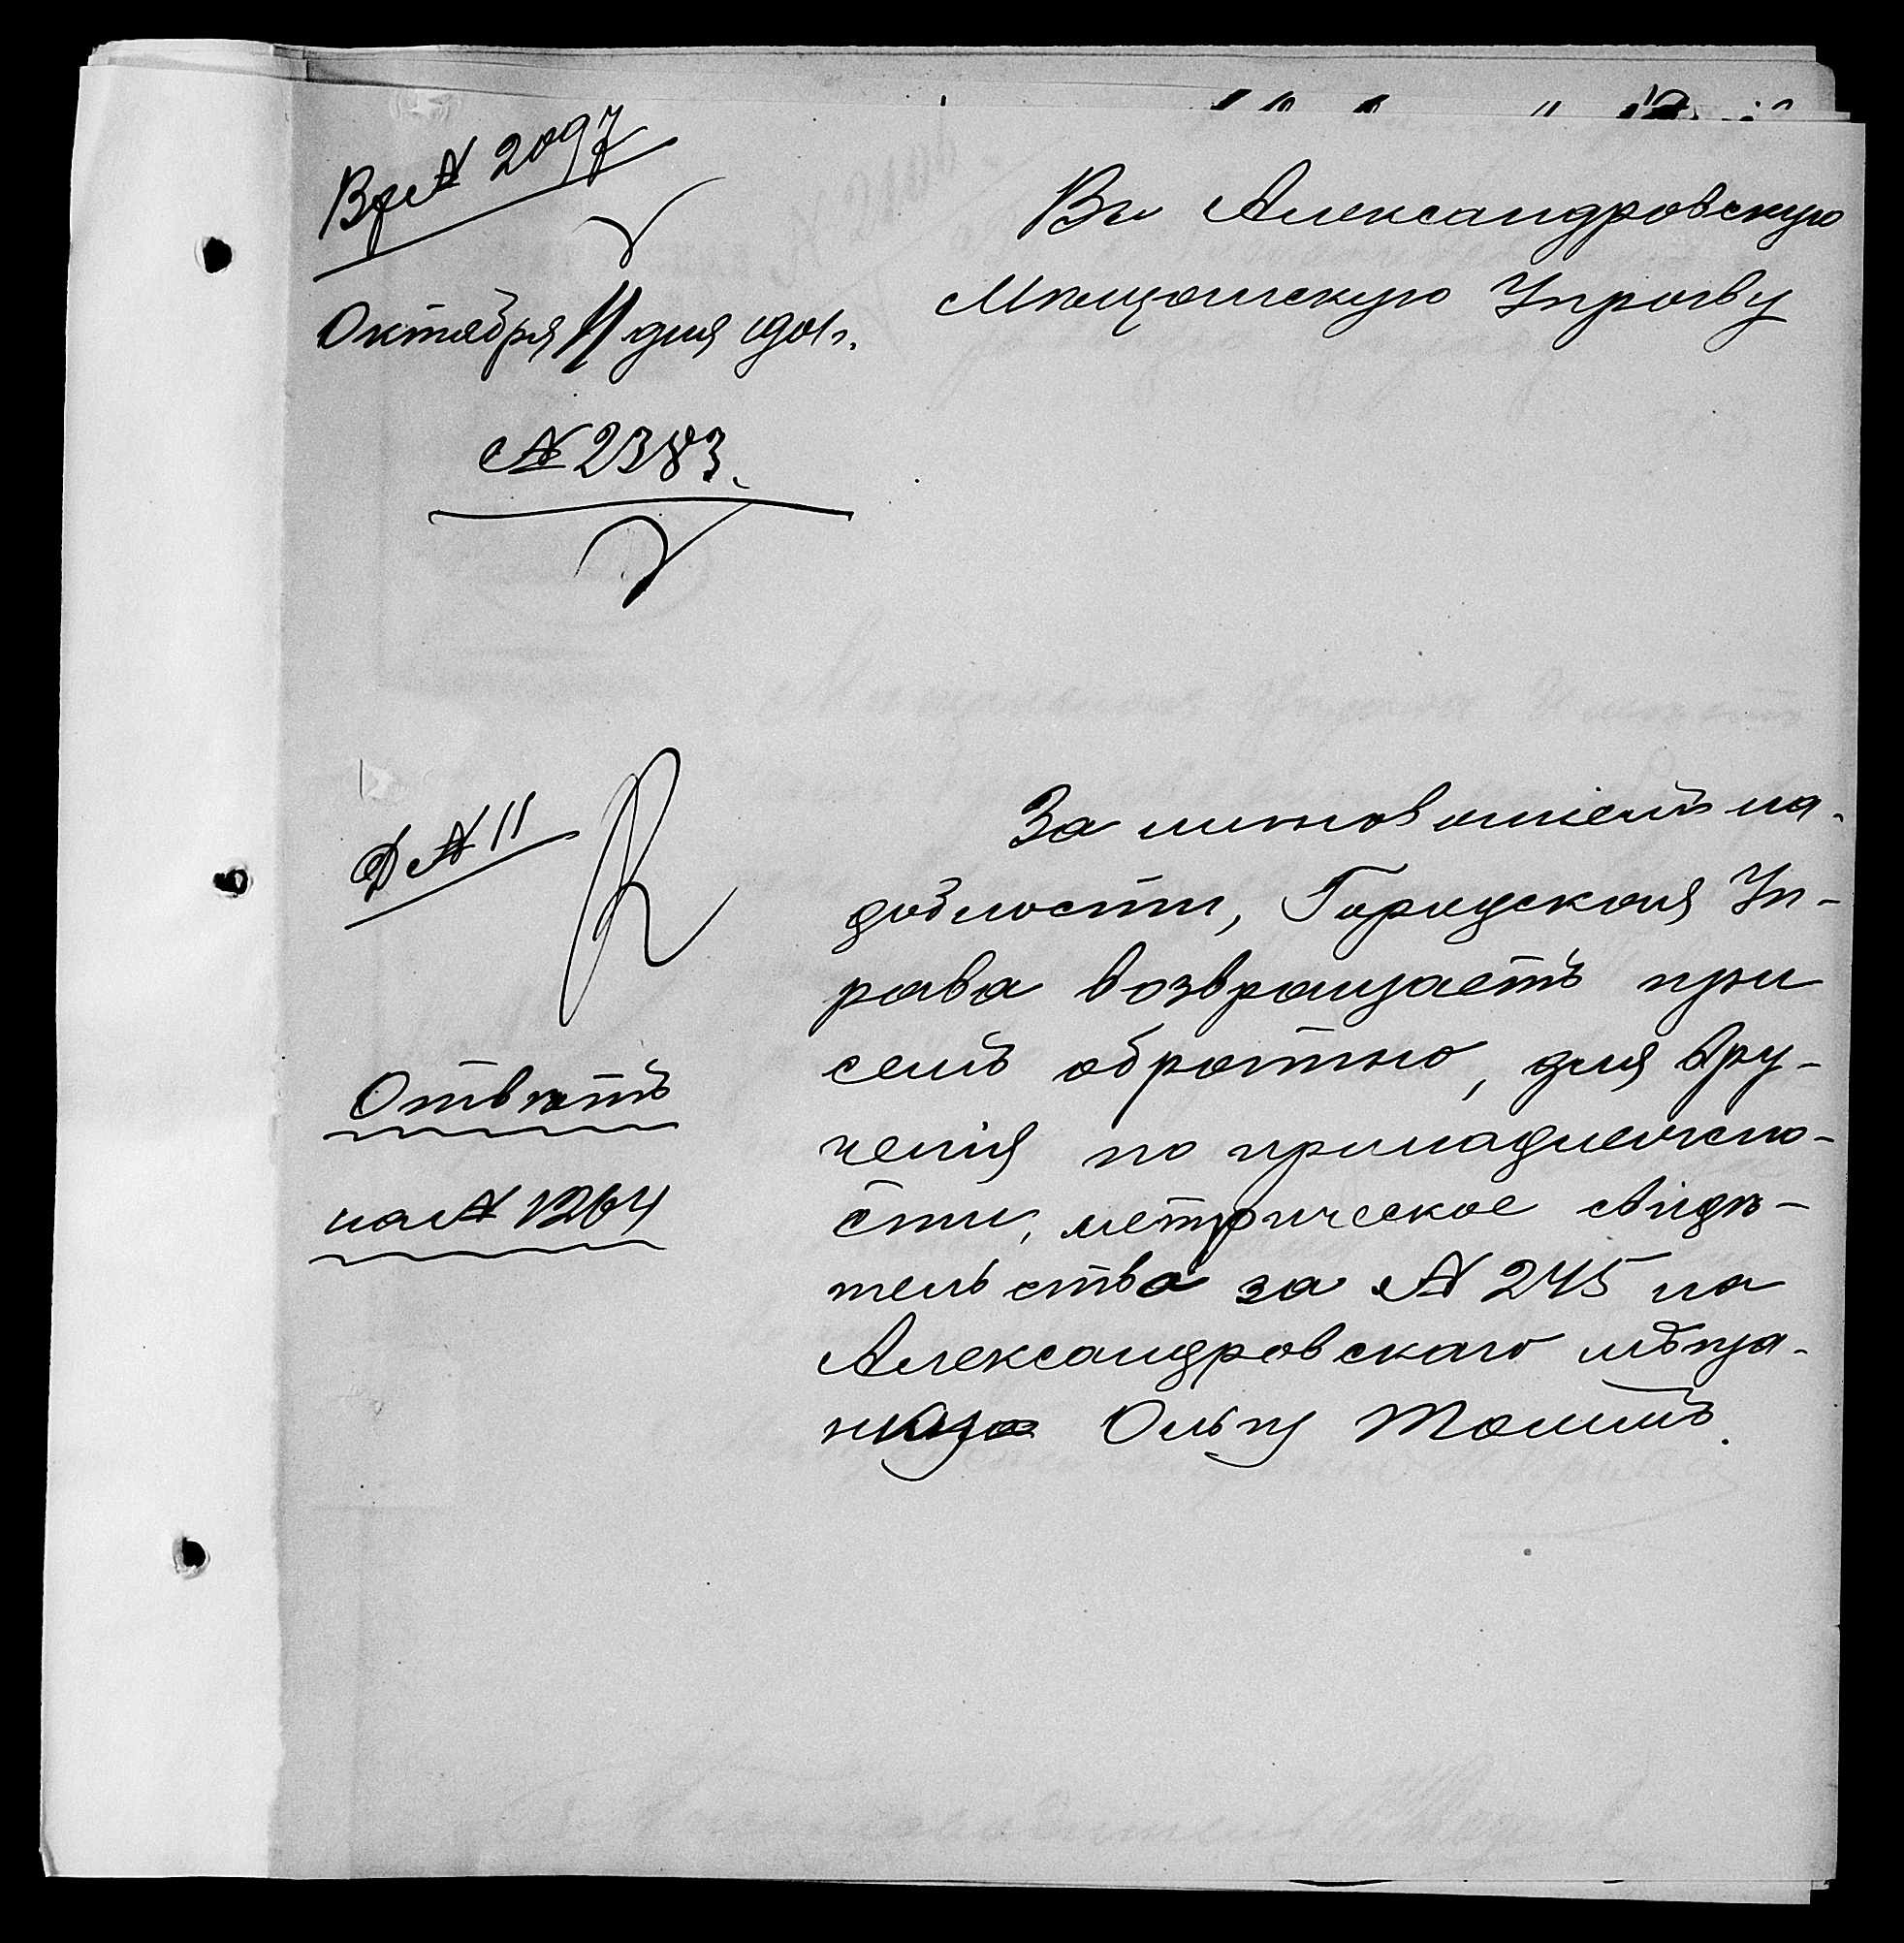 Вх № 2097
Октября 11 дня 1901 г.
№ 2383.
Въ Александровскую
Мѣщанскую Управу
Д № 11
Отвѣтъ
на № 1264
За минованіемъ на-
добности, Городская Уп-
рава возвращаетъ при
семъ обратно, для вру-
ченія по принадлежно-
сти, метрическое свидѣ-
тельство за № 245 на
Александровскаго мѣща-
Ольгу